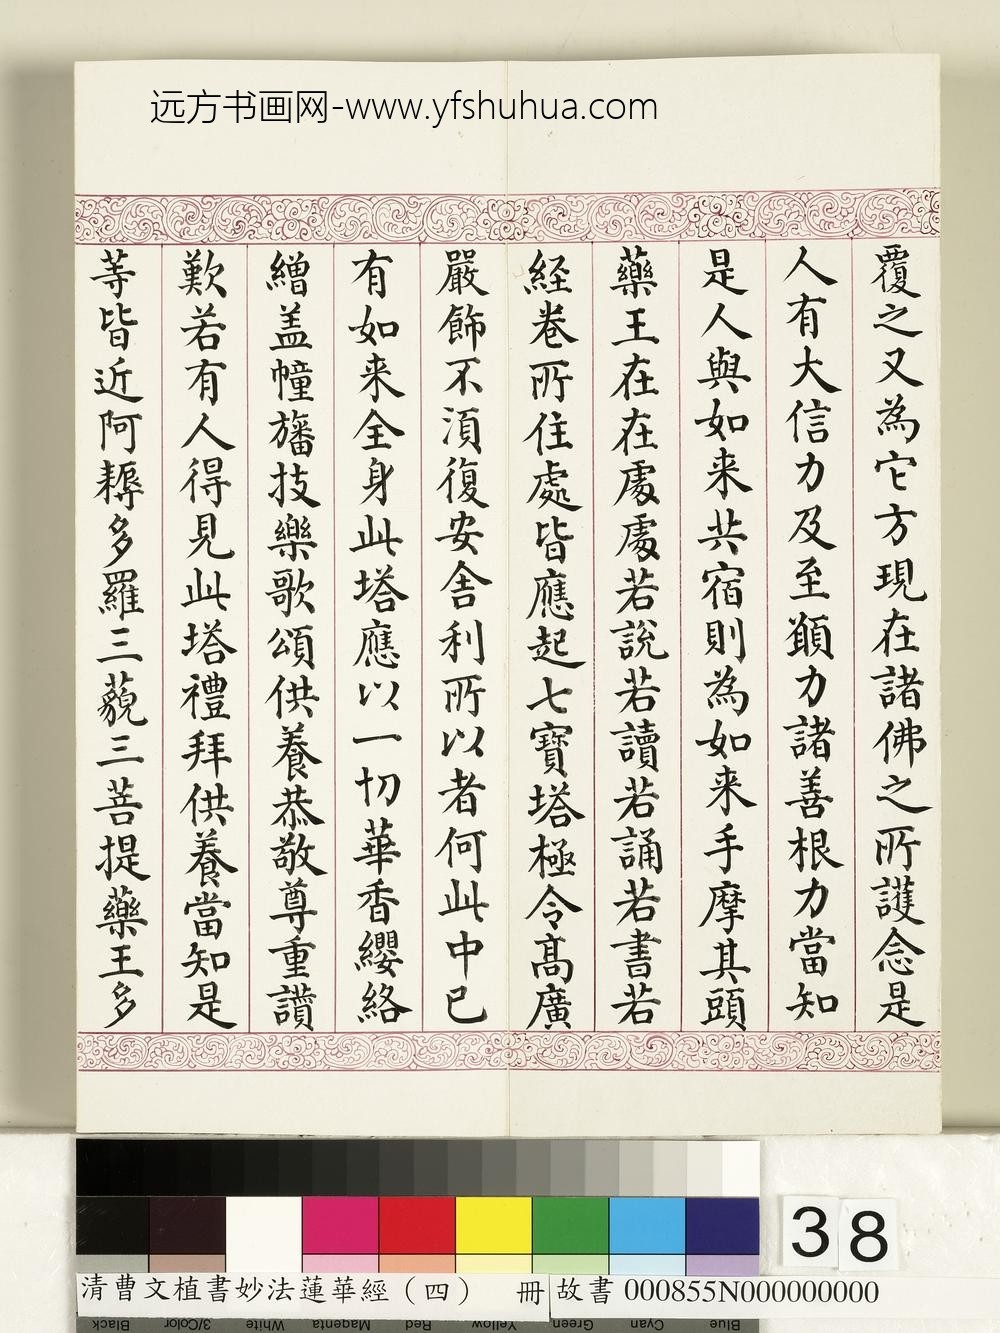 远方书画网-www.yfshuhua.com
覆之又為它方現在諸佛之所護念是
人有大信力及至願力諸善根力當知
是人與如来共宿則為如来手摩其頭
藥王在在處處若說若讀若誦若書若
経卷所住處皆應起七寶塔極令髙廣
嚴飾不湏復安舎利所以者何此中已
有如来全身此塔應以一切華香纓絡
繒盖幢旛技樂歌頌供養恭敬尊重讃
歎若有人得見此塔禮拜供養當知是
等皆近阿耨多羅三藐三菩提藥王多
38
清曹文植書妙法蓮華經（四） 冊 故書 000855N000000000
Black 3/Color White Magenta Red Yellow Green Cyan Blue